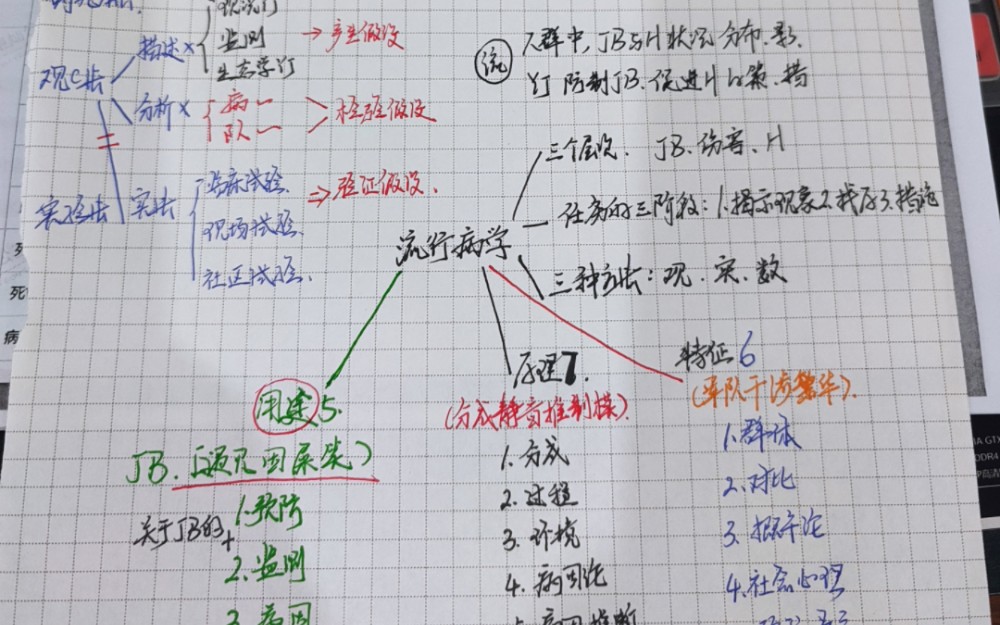 现况行
描述×
监测
→产生假设
生态学行
观C法
分析×
病一
队一
检验假设
实验法
实法
临床试验
⇒验证假设.
现场试验.
社区试验.
流
人群中,JB与H状况分布.影.
行防制JB.促进H的策.措
三个层次. JB.伤害.H
任务的三阶段:1.揭示现象2.找原3.措施
三种方法:观.实.数
流行病学
用途5.
JB.
关于JB的+
1.预防
2.监测
3.病因
原理7.
1.分成
2.过程
3.环境
4.病因论
5.病因推断
特征6
1.群体
2.对比
3.概率论
4.社会心理
死
病
DDR4